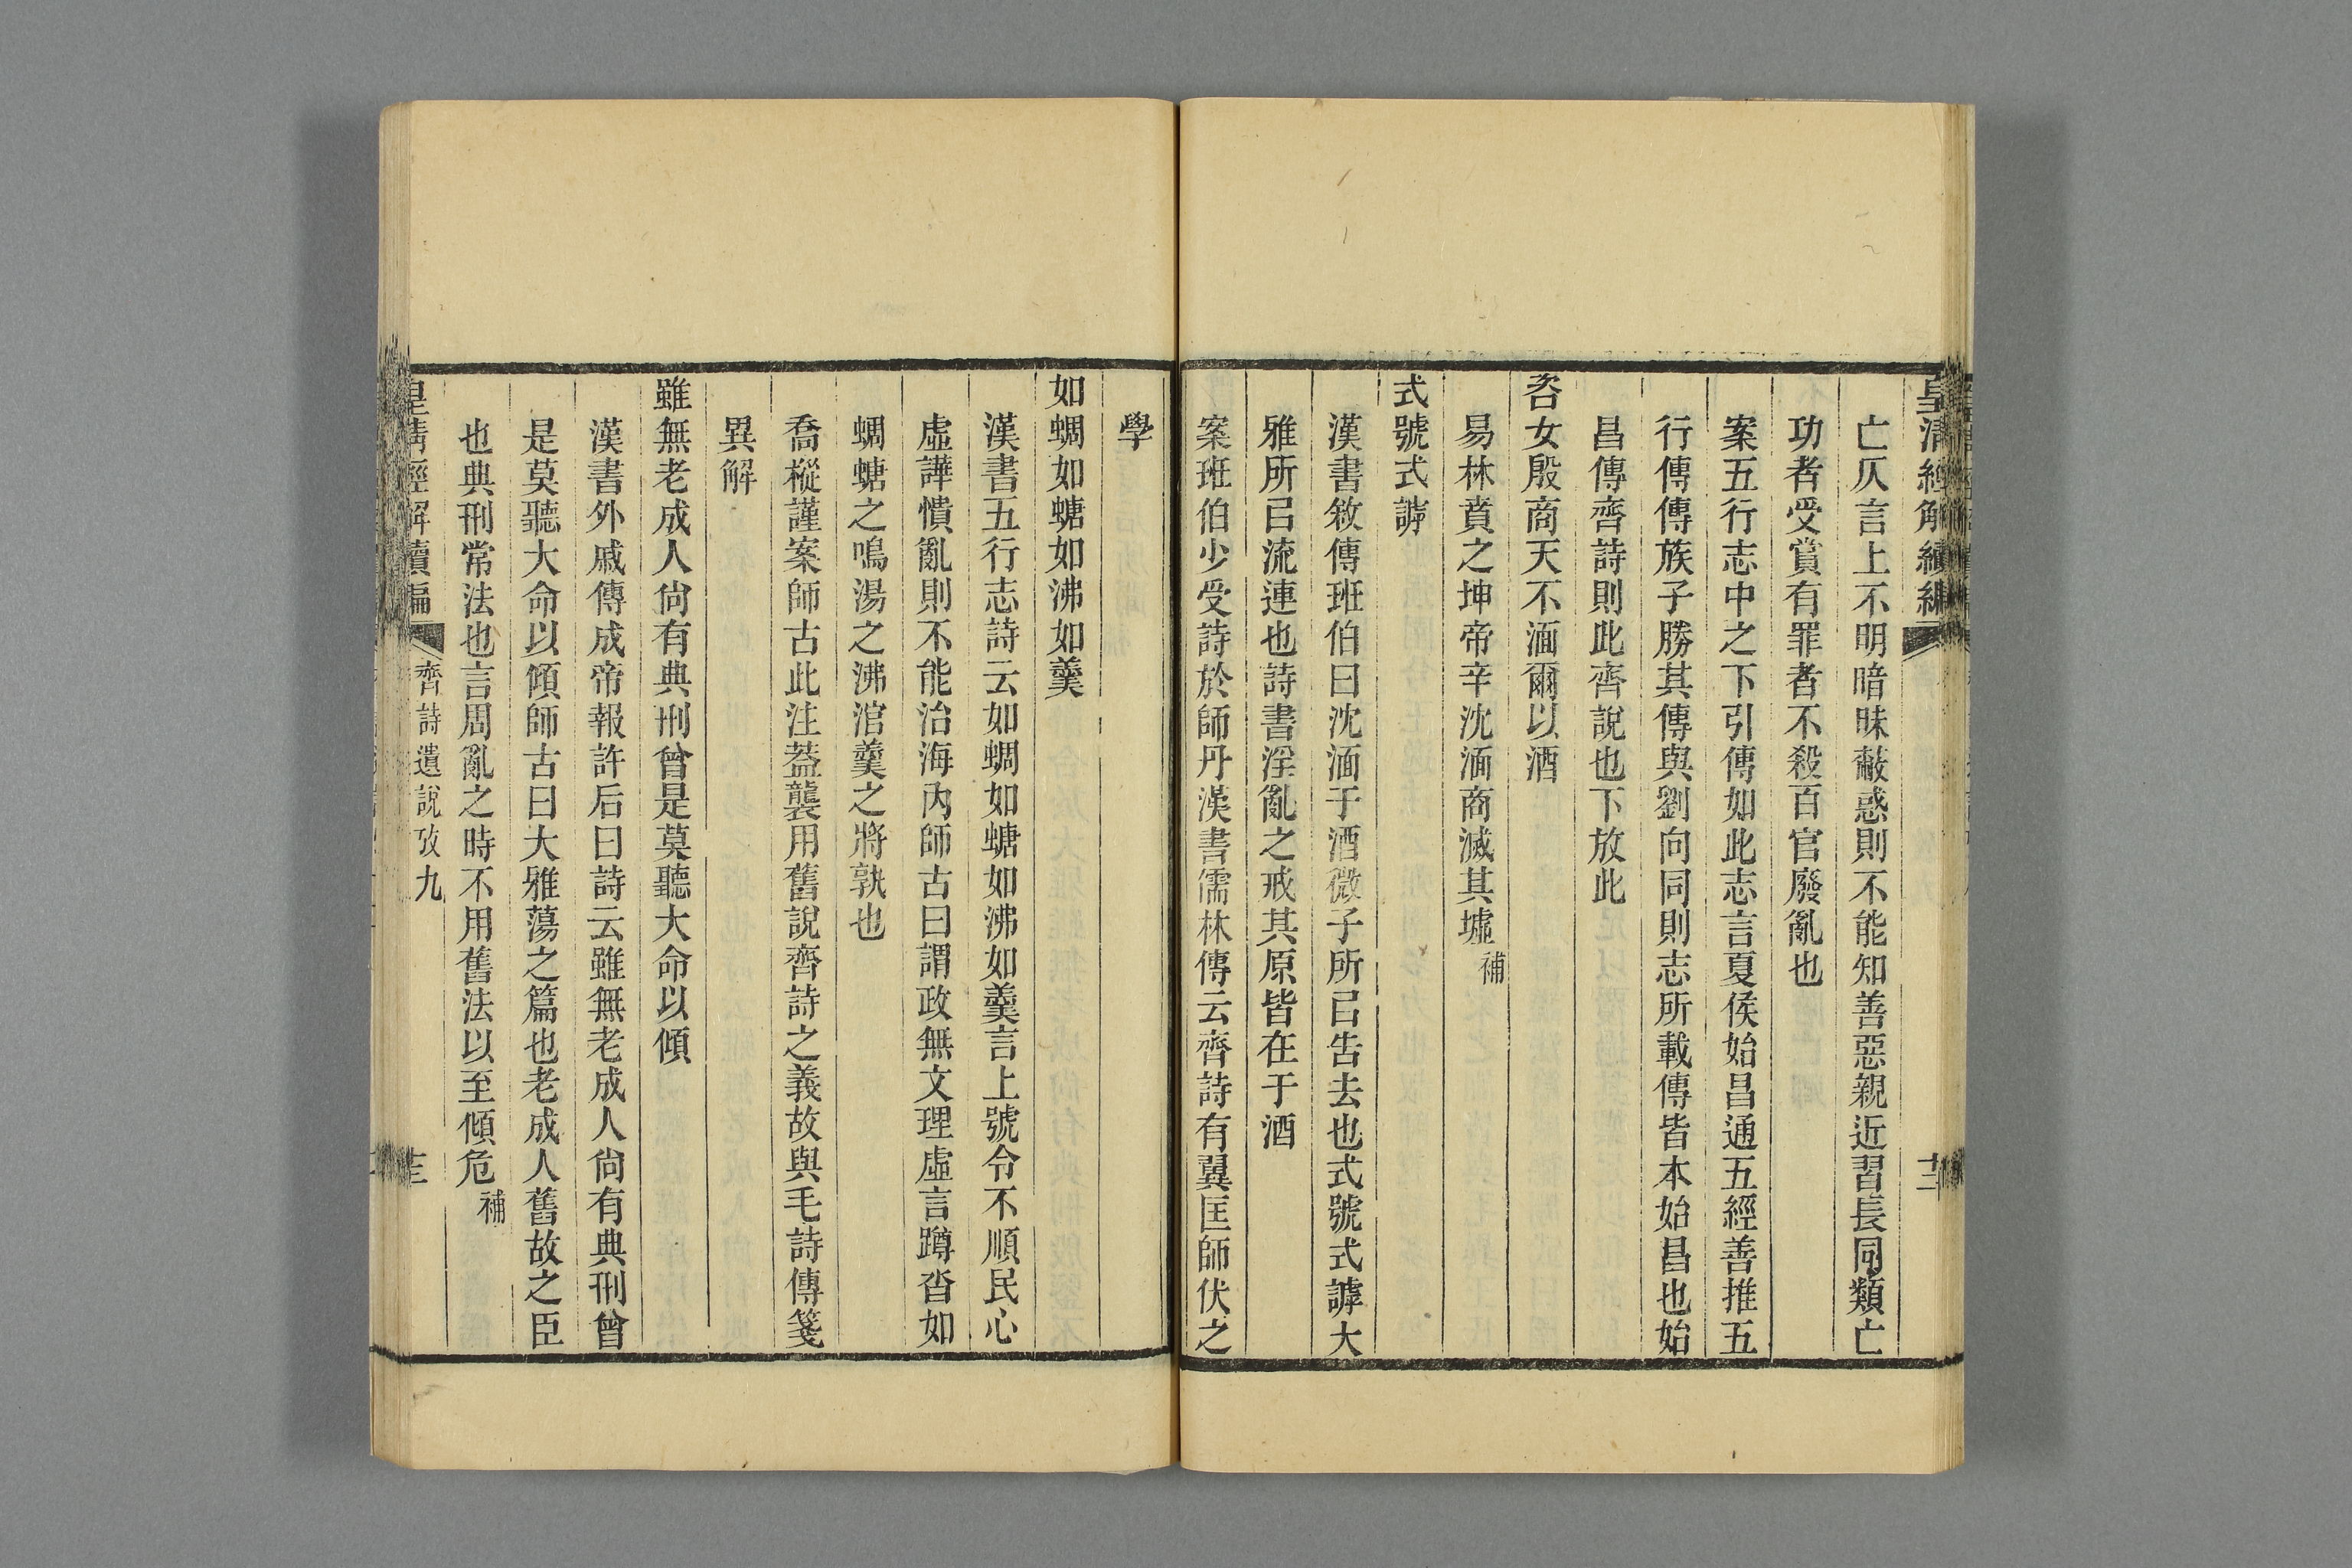 皇清經解續編
十二
亡仄言上不明暗昧蔽惑則不能知善惡親近習長同類亡
功者受賞有罪者不殺百官廢亂也
案五行志中之下引傳如此志言夏侯始昌通五經善推五
行傳傳族子勝其傳與劉向同則志所載傳皆本始昌也始
昌傳齊詩則此齊說也下放此
咨女殷商天不湎爾以酒
易林賁之坤帝辛沈湎商滅其墟補
式號式謼
漢書敘傳班伯曰沈湎于酒微子所㠯告去也式號式謼大
雅所㠯流連也詩書淫亂之戒其原皆在于酒
案班伯少受詩於師丹漢書儒林傳云齊詩有翼匡師伏之
學
如蜩如螗如沸如羹
漢書五行志詩云如蜩如螗如沸如羹言上號令不順民心
虛譁憒亂則不能治海內師古曰謂政無文理虛言蹲沓如
蜩螗之鳴湯之沸涫羹之將孰也
喬樅謹案師古此注葢襲用舊說齊詩之義故與毛詩傳箋
異解
雖無老成人尙有典刑曾是莫聽大命以傾
漢書外戚傳成帝報許后曰詩云雖無老成人尙有典刑曾
是莫聽大命以傾師古曰大雅蕩之篇也老成人舊故之臣
也典刑常法也言周亂之時不用舊法以至傾危補
皇清經解續編
齊詩遺說攷九